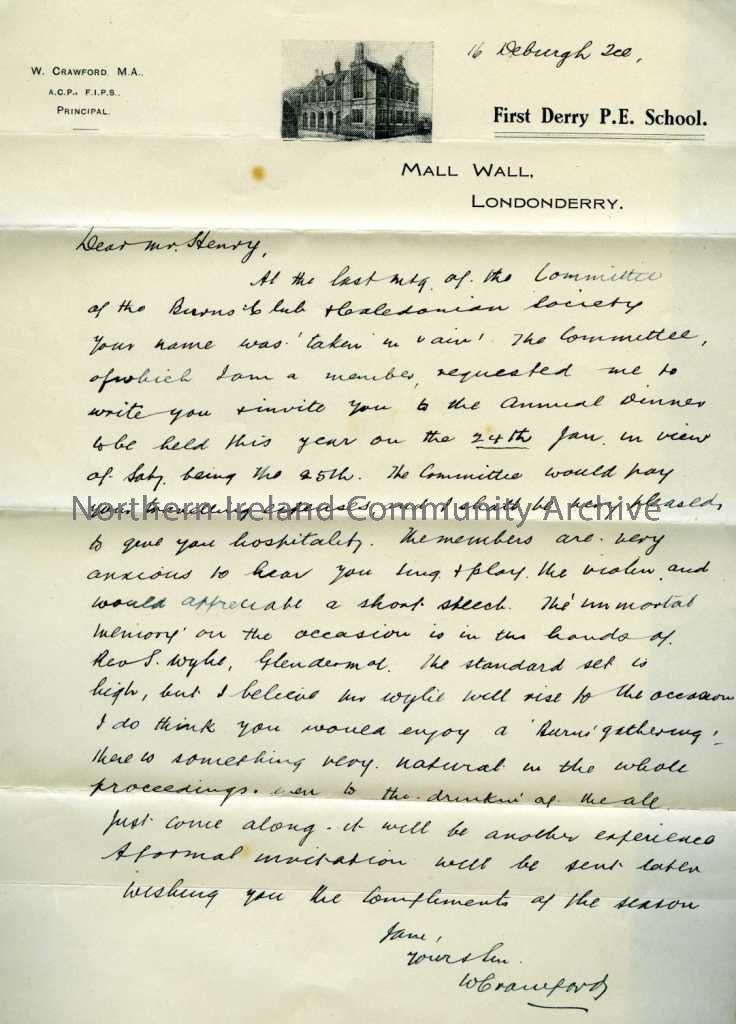 16 Deburgh Tce,
W. CRAWFORD, M.A.,
A.C.P., F.I.P.S.,
PRINCIPAL.
First Derry P.E. School.
MALL WALL,
LONDONDERRY.
Dear Mr. Henry,
At the last mtg. of the Committee
of the Burns' Club & Caledonian Society
Your name was 'taken in vain'. The Committee,
of which I am a member, requested me to
write you & invite you to the Annual Dinner
to be held this year on the 24th Jan. in view
of Saty. being the 25th. The Committee would pay
your travelling expenses, and I shall be very pleased,
Northern Ireland Community Archive
to give you hospitality. The members are very
anxious to hear you sing & play the violin and
would appreciate a short speech. The 'immortal
memory' on the occasion is in the hands of
Rev S. Wylie, Glendermot. The standard set is
high, but I believe Mr Wylie will rise to the occasion
I do think you would enjoy a 'Burns' gathering'.
there is something very natural in the whole
proceedings. even to the drinkin' of the ale.
Just come along - it will be another experience
A formal invitation will be sent later
Wishing you the Compliments of the season
I am,
Yours Sin.
WCrawford